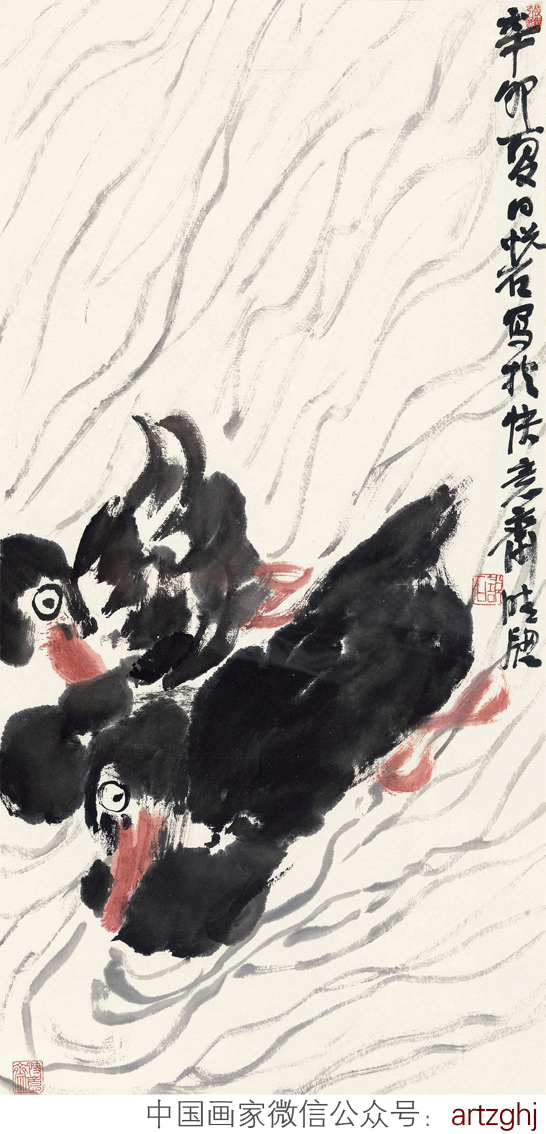 辛卯夏日悦石写於快意斋晴牕
中国画家微信公众号：artzghj